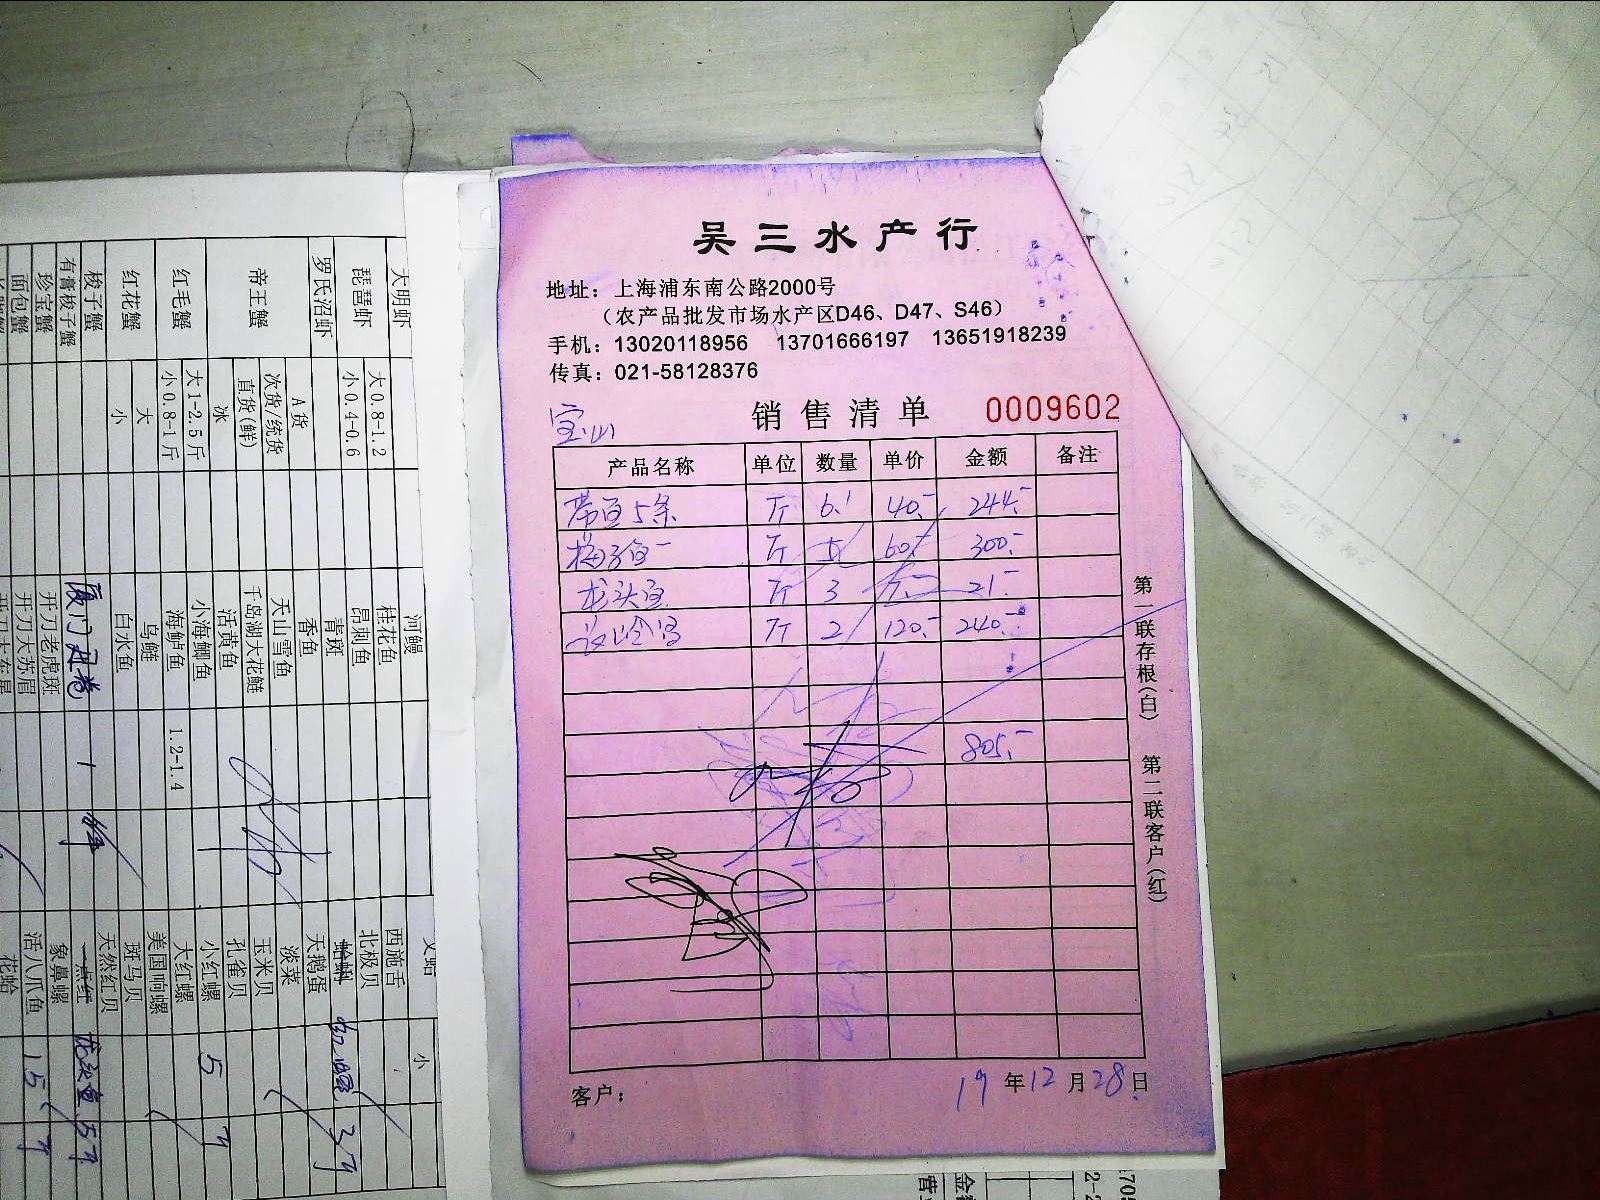 吴三水产行
地址：上海浦东南公路2000号
（农产品批发市场水产区D46、D47、S46）
手机：13020118956 13701666197 13651918239
传真：021-58128376
宝山
销售清单 0009602
产品名称 单位 数量 单价 金额 备注
带鱼5条 斤 6.1 40.- 244.-
梅子鱼 斤 5 60.- 300.-
龙头鱼 斤 3 7.- 21.-
斤 2 120.- 240.-
805.-
客户：
19年12月28日
第一联存根(白) 第二联客户(红)
大明虾
琵琶虾 大0.8-1.2
小0.4-0.6
罗氏沼虾
帝王蟹 A货
次货/统货
直货(鲜)
冰
红毛蟹 大1-2.5斤
小0.8-1斤
红花蟹 大
小
梭子蟹
有膏梭子蟹
珍宝蟹
面包蟹
河鳗
桂花鱼
昂刺鱼
青斑
香鱼
天山雪鱼
千岛湖大花鲢
活黄鱼
小海鲫鱼
海鲈鱼 1.2-1.4
乌鲢
白水鱼
厦门
开刀老虎斑
开刀大苏眉
文蛤 小
西施舌
北极贝
蛤蜊
天鹅蛋
淡菜
玉米贝
孔雀贝
小红螺 5斤
大红螺
美国响螺
斑马贝
天然红贝
一点红 龙头鱼 5斤
象鼻螺
活八爪鱼 15斤
花蛤